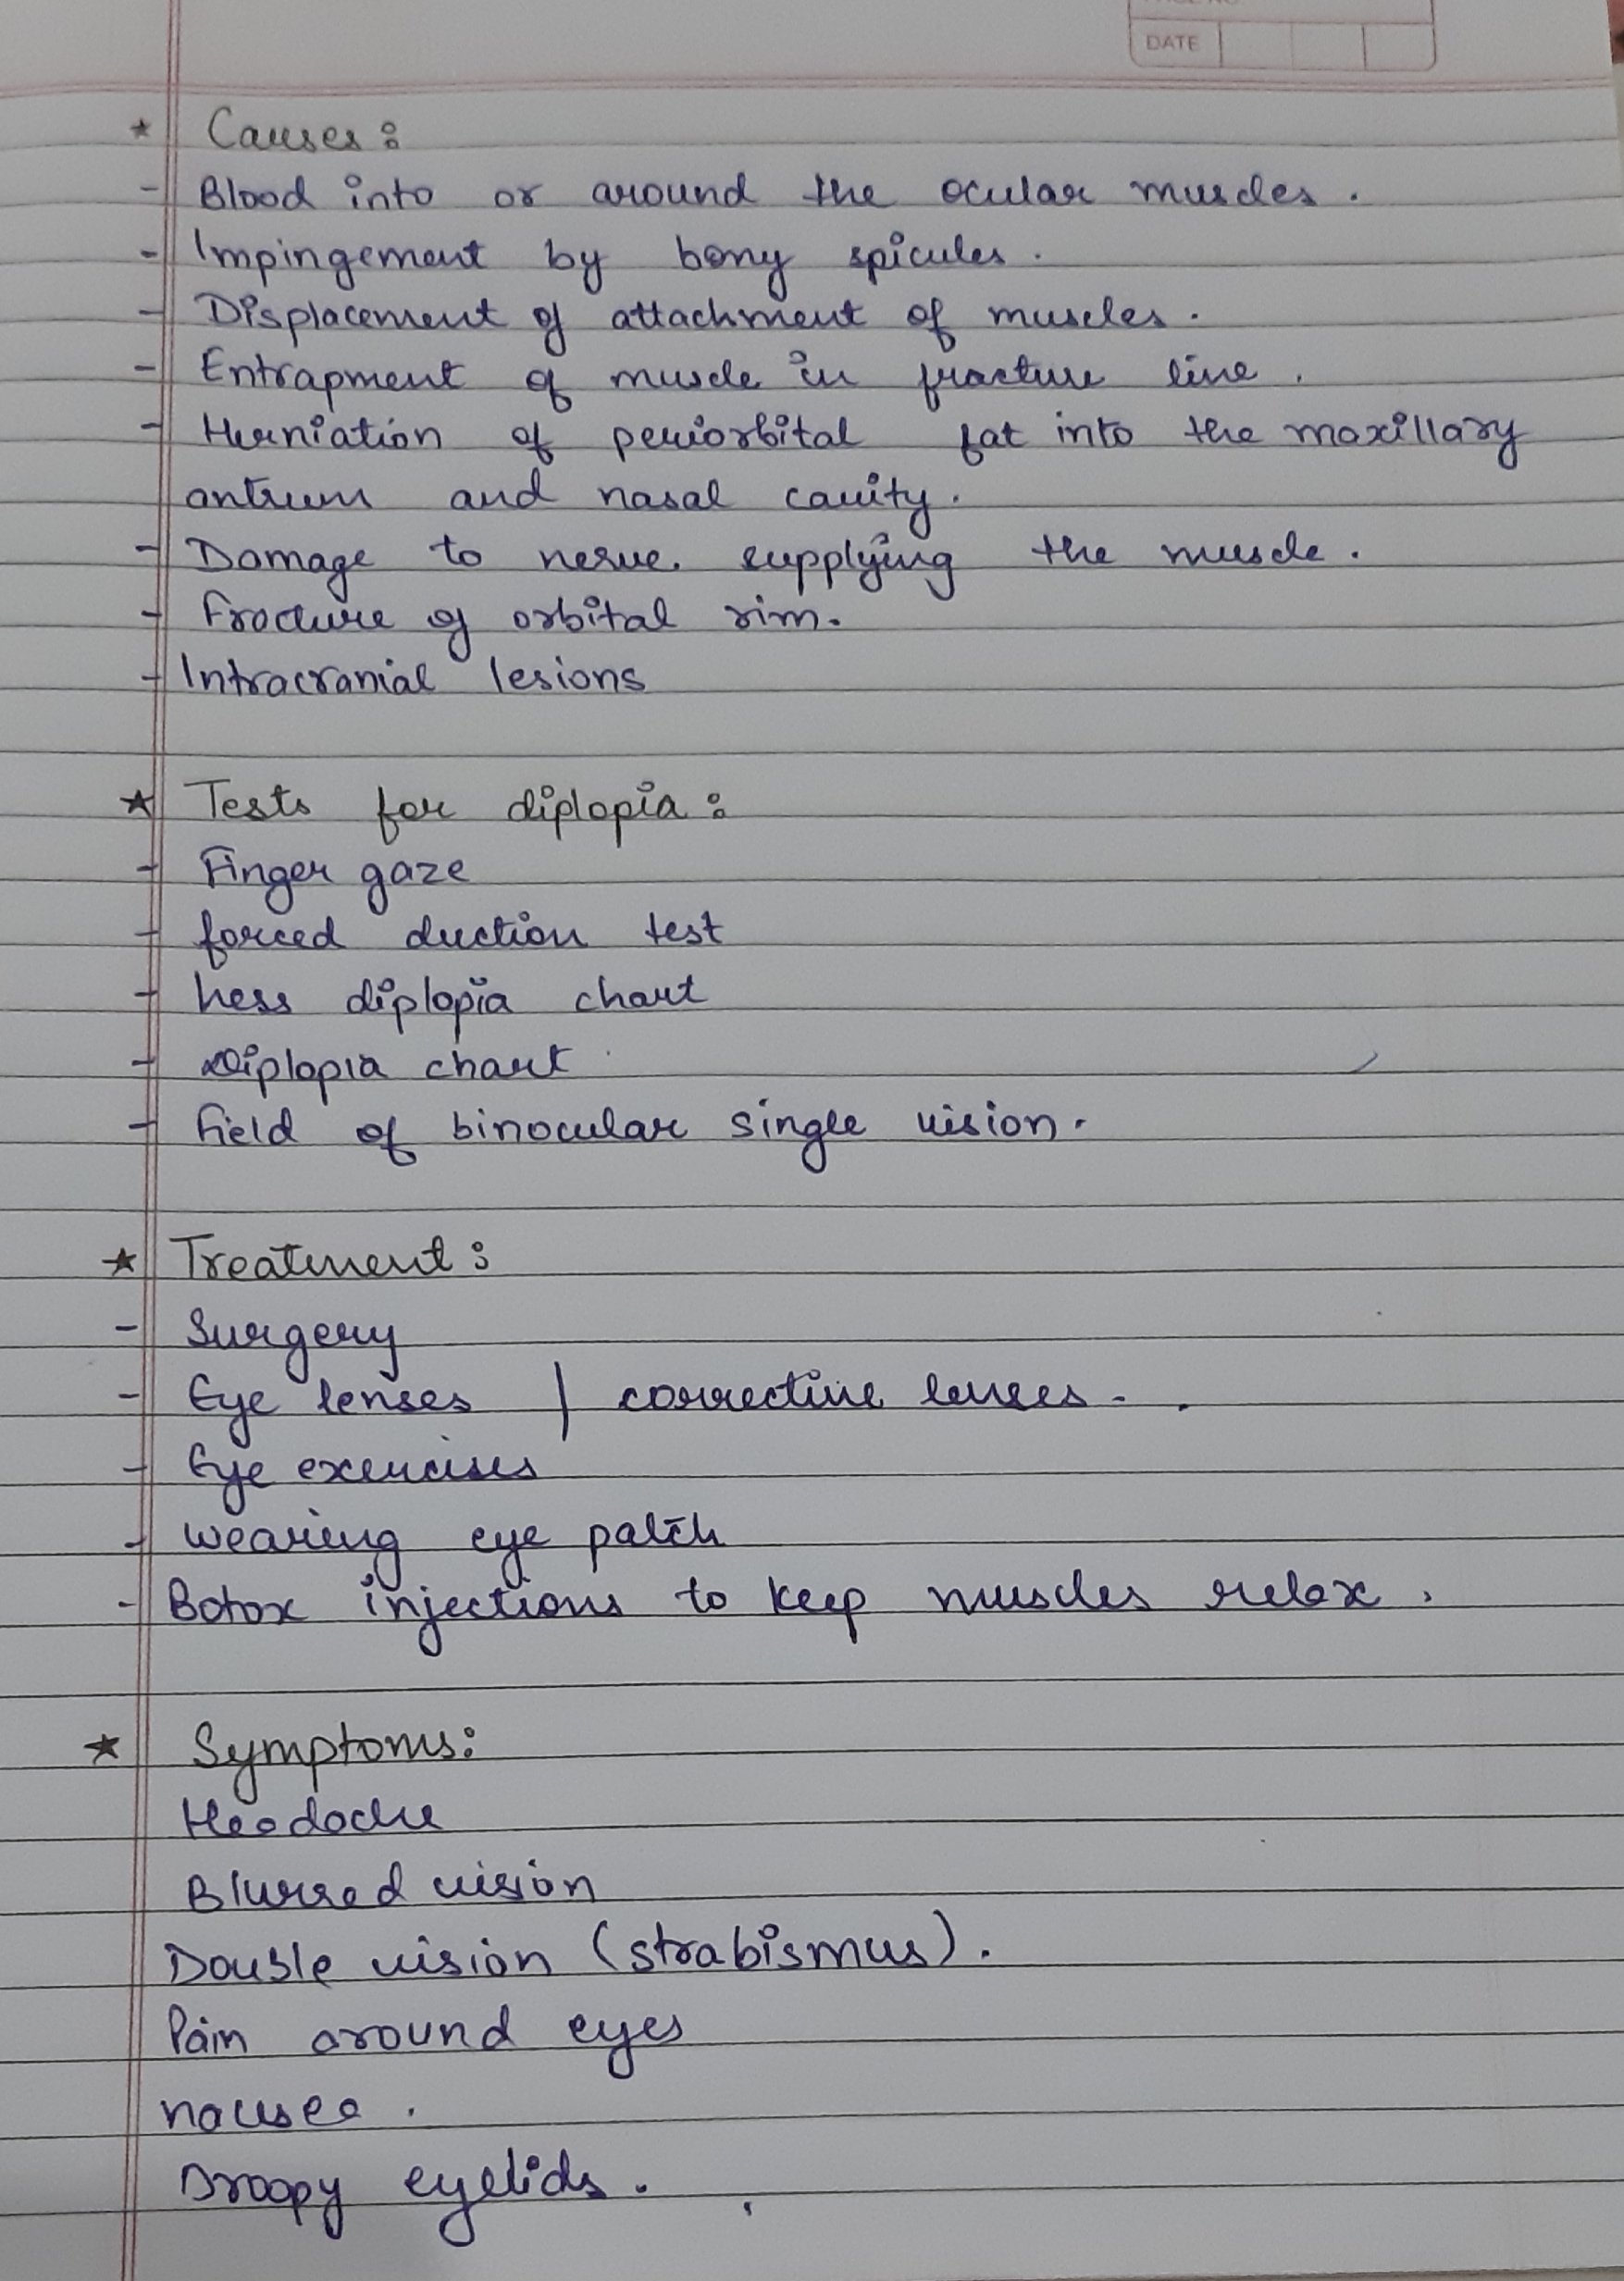 DATE
* Causes:
- Blood into or around the ocular muscles.
- Impingement by bony spicules.
- Displacement of attachment of muscles.
- Entrapment of muscle in fracture line.
- Herniation of periorbital fat into the maxillary
antrum and nasal cavity.
- Damage to nerve supplying the muscle.
- Fracture of orbital rim.
- Intracranial lesions
* Tests for diplopia:
- Finger gaze
- forced duction test
- hess diplopia chart
- Diplopia chart
- field of binocular single vision.
* Treatment:
- Surgery
- Eye lenses / corrective lenses.
- Eye exercises
- wearing eye patch
- Botox injections to keep muscles relax.
* Symptoms:
Headache
Blurred vision
Double vision (strabismus).
Pain around eyes
nausea.
Droopy eyelids.